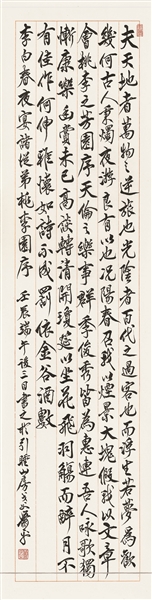 夫天地者萬物之逆旅也光陰者百代之過客也而浮生若夢為歡
幾何古人秉燭夜遊良有以也況陽春召我以煙景大塊假我以文章
會桃李之芳園序天倫之樂事群季俊秀皆為惠連吾人詠歌獨
慚康樂幽賞未已高談轉清開瓊筵以坐花飛羽觴而醉月不
有佳作何伸雅懷如詩不成罰依金谷酒數
李白春夜宴諸從弟桃李園序 壬辰端午後三日書之於引山房